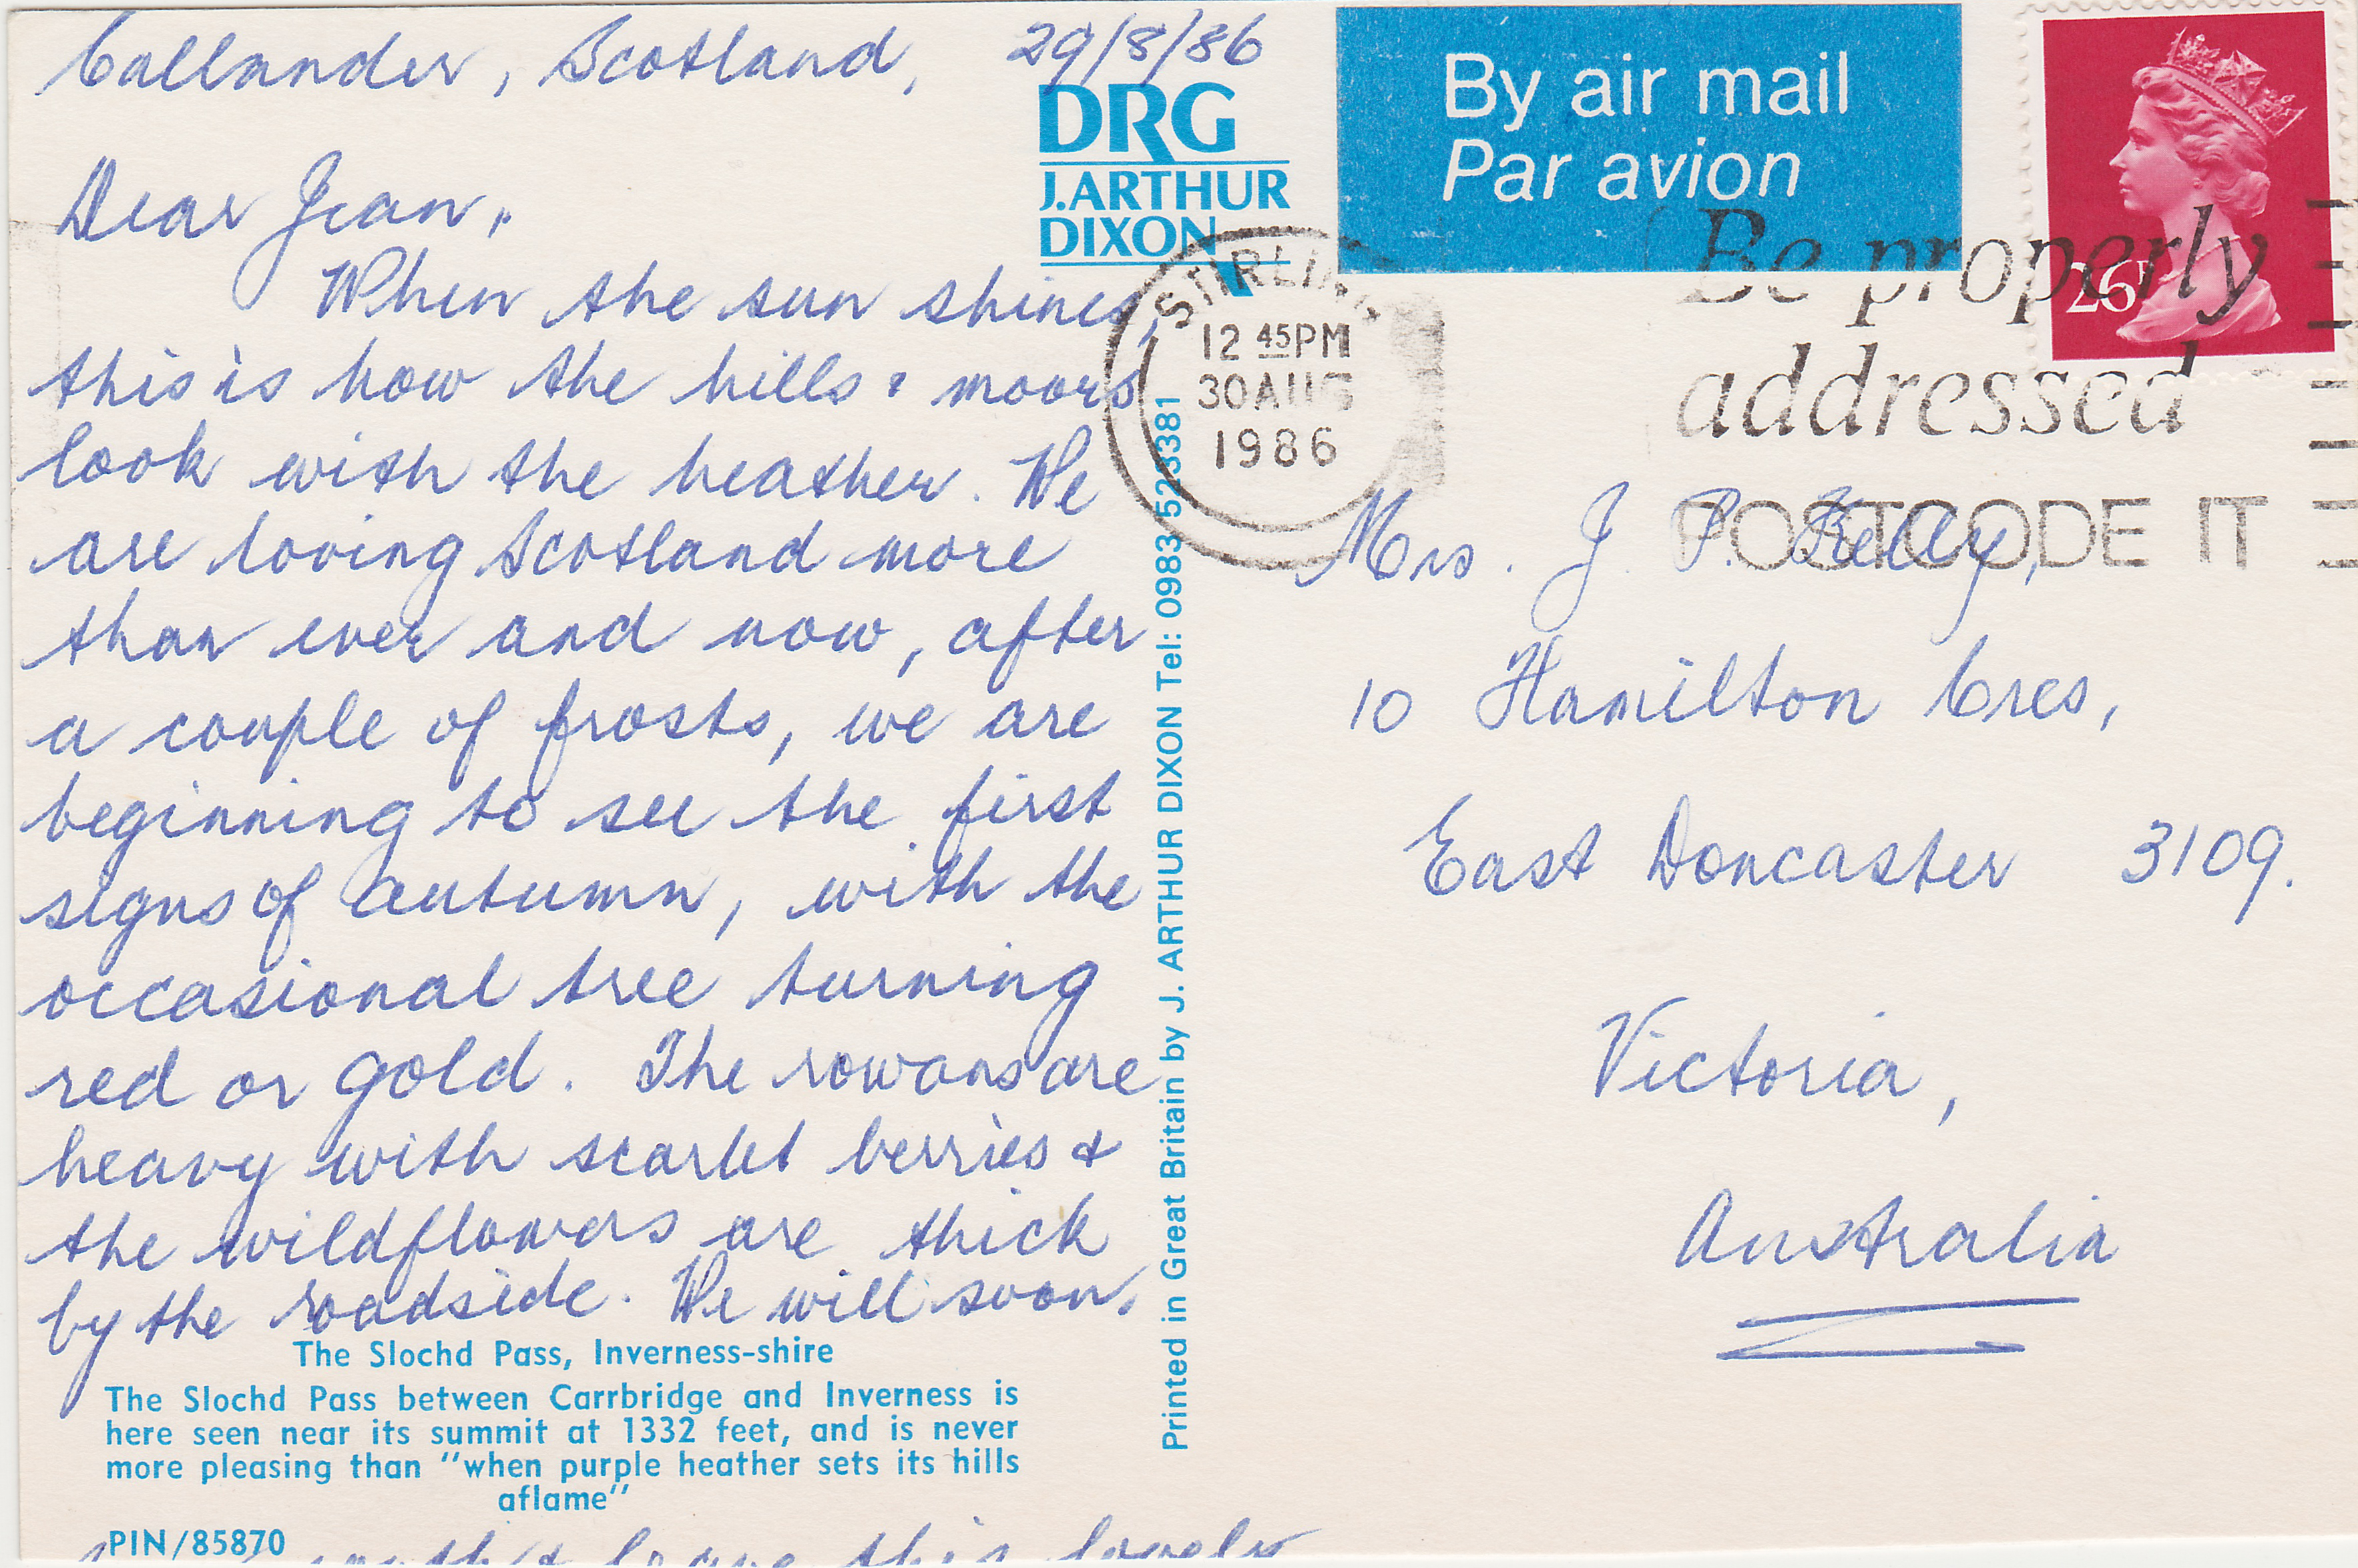 Callander, Scotland, 29/8/86
Dear Jean,
When the sun shines,
this is how the hills & moors
look with the heather. We
are loving Scotland more
than ever and now, after
a couple of frosts, we are
beginning to see the first
signs of autumn, with the
occasional tree turning
red or gold. The rowans are
heavy with scarlet berries &
the wildflowers are thick
by the roadside. We will soon
The Slochd Pass, Inverness-shire
The Slochd Pass between Carrbridge and Inverness is
here seen near its summit at 1332 feet, and is never
more pleasing than "when purple heather sets its hills
aflame"
PIN/85870
south & leave this lovely
DRG
J.ARTHUR
DIXON
Printed in Great Britain by J. ARTHUR DIXON Tel: 0983 523381
By air mail
Par avion
26P
STIRLING
12 45PM
30 AUG
1986
Be properly
addressed
POSTCODE IT
Mrs. J. P. Kelly,
10 Hamilton Cres,
East Doncaster 3109.
Victoria,
Australia